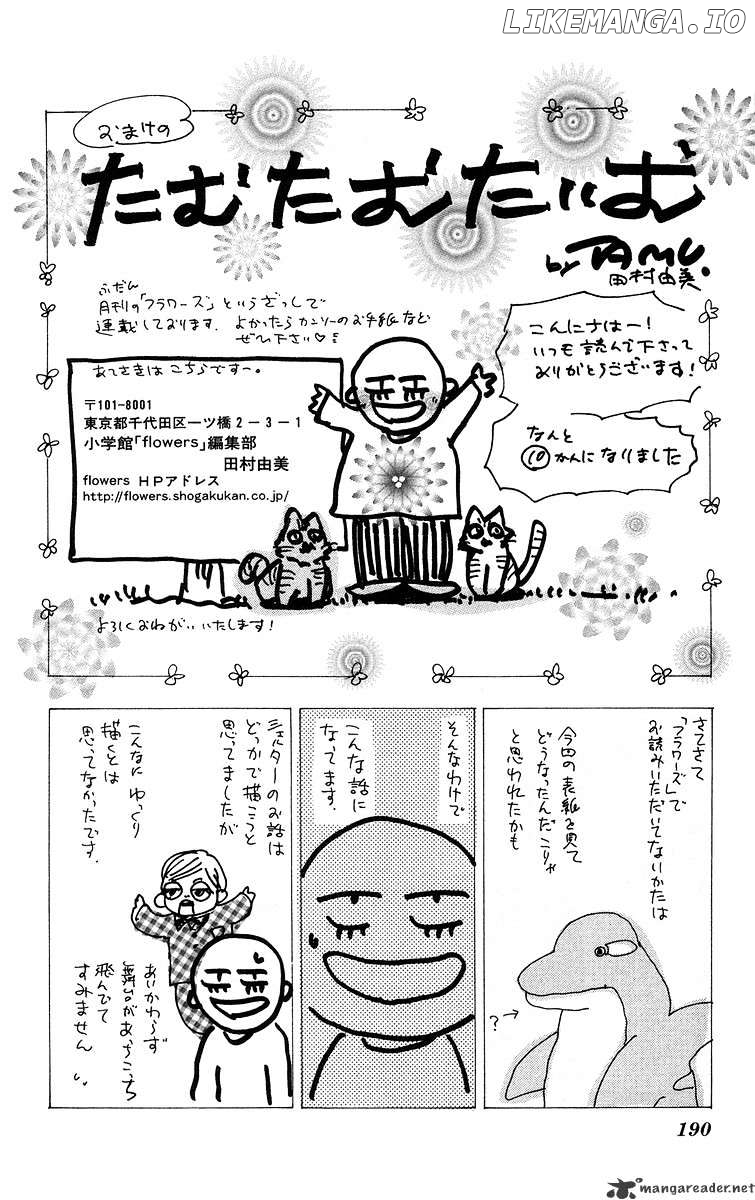 LIKEMANGA.IO
おまけの
たむたむたいむ
by TAMU.
田村由美
ふだん
月刊の「フラワーズ」というざっしで
連載しております。よかったらカンソーのお手紙など
ぜひ下さい♡
こんにちはー!
いつも読んで下さって
ありがとうございます!
なんと
⑩かんになりました
あてさきはこちらですー。
〒101-8001
東京都千代田区一ツ橋2-3-1
小学館「flowers」編集部
田村由美
flowers HPアドレス
http://flowers.shogakukan.co.jp/
よろしくおねがいいたします!
さてさて
「フラワーズ」で
お読みいただいてないかたは
今回の表紙を見て
どうなったんだこりゃ
と思われたかも
?→
そんなわけで
こんな話に
なってます。
シェルターのお話は
どっかで描こうと
思ってましたが
こんなにゆっくり
描くとは
思ってなかったです。
あいかわらず
舞台があっちこっち
飛んでて
すみません
190
mangareader.net